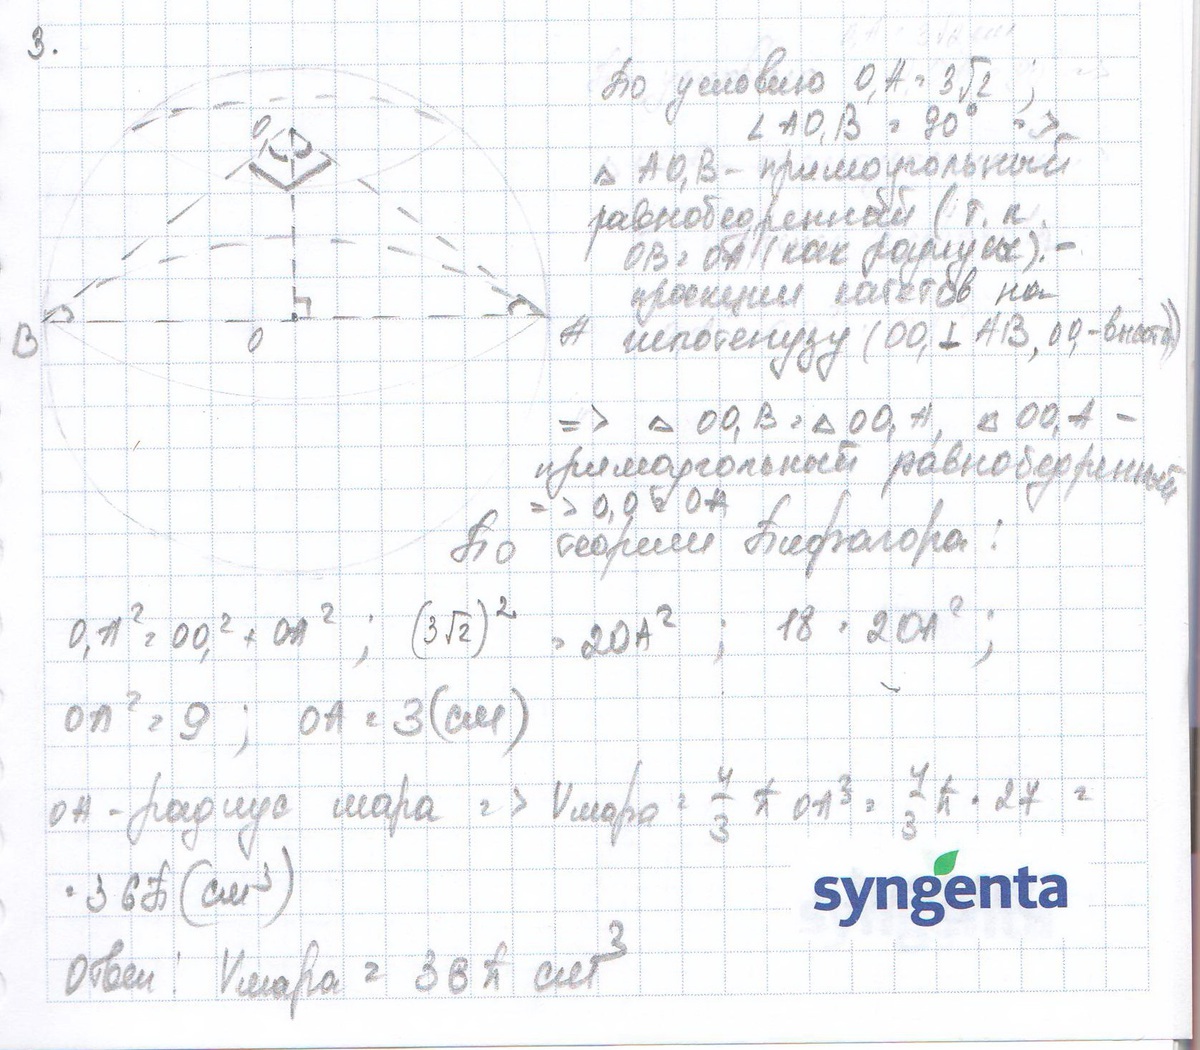 3.
По условию O₁A = 3√2 ;
∠AO₁B = 90° =>
△ AO₁B - прямоугольный
равнобедренный (т.к.
OB = OA (как радиусы) -
проекции катетов на
гипотенузу (OO₁ ⊥ AB, OO₁ - высота))
=> △ OO₁B = △ OO₁A, △ OO₁A -
прямоугольный равнобедренный
=> O₁O = OA
По теореме Пифагора :
O₁
B
O
A
O₁A² = OO₁² + OA² ; (3√2)² = 2OA² ; 18 = 2OA² ;
OA² = 9 ; OA = 3 (см)
OA - радиус шара => Vшара = 4/3 π OA³ = 4/3 π · 27 =
= 36π (см³)
Ответ: Vшара = 36π см³
syngenta